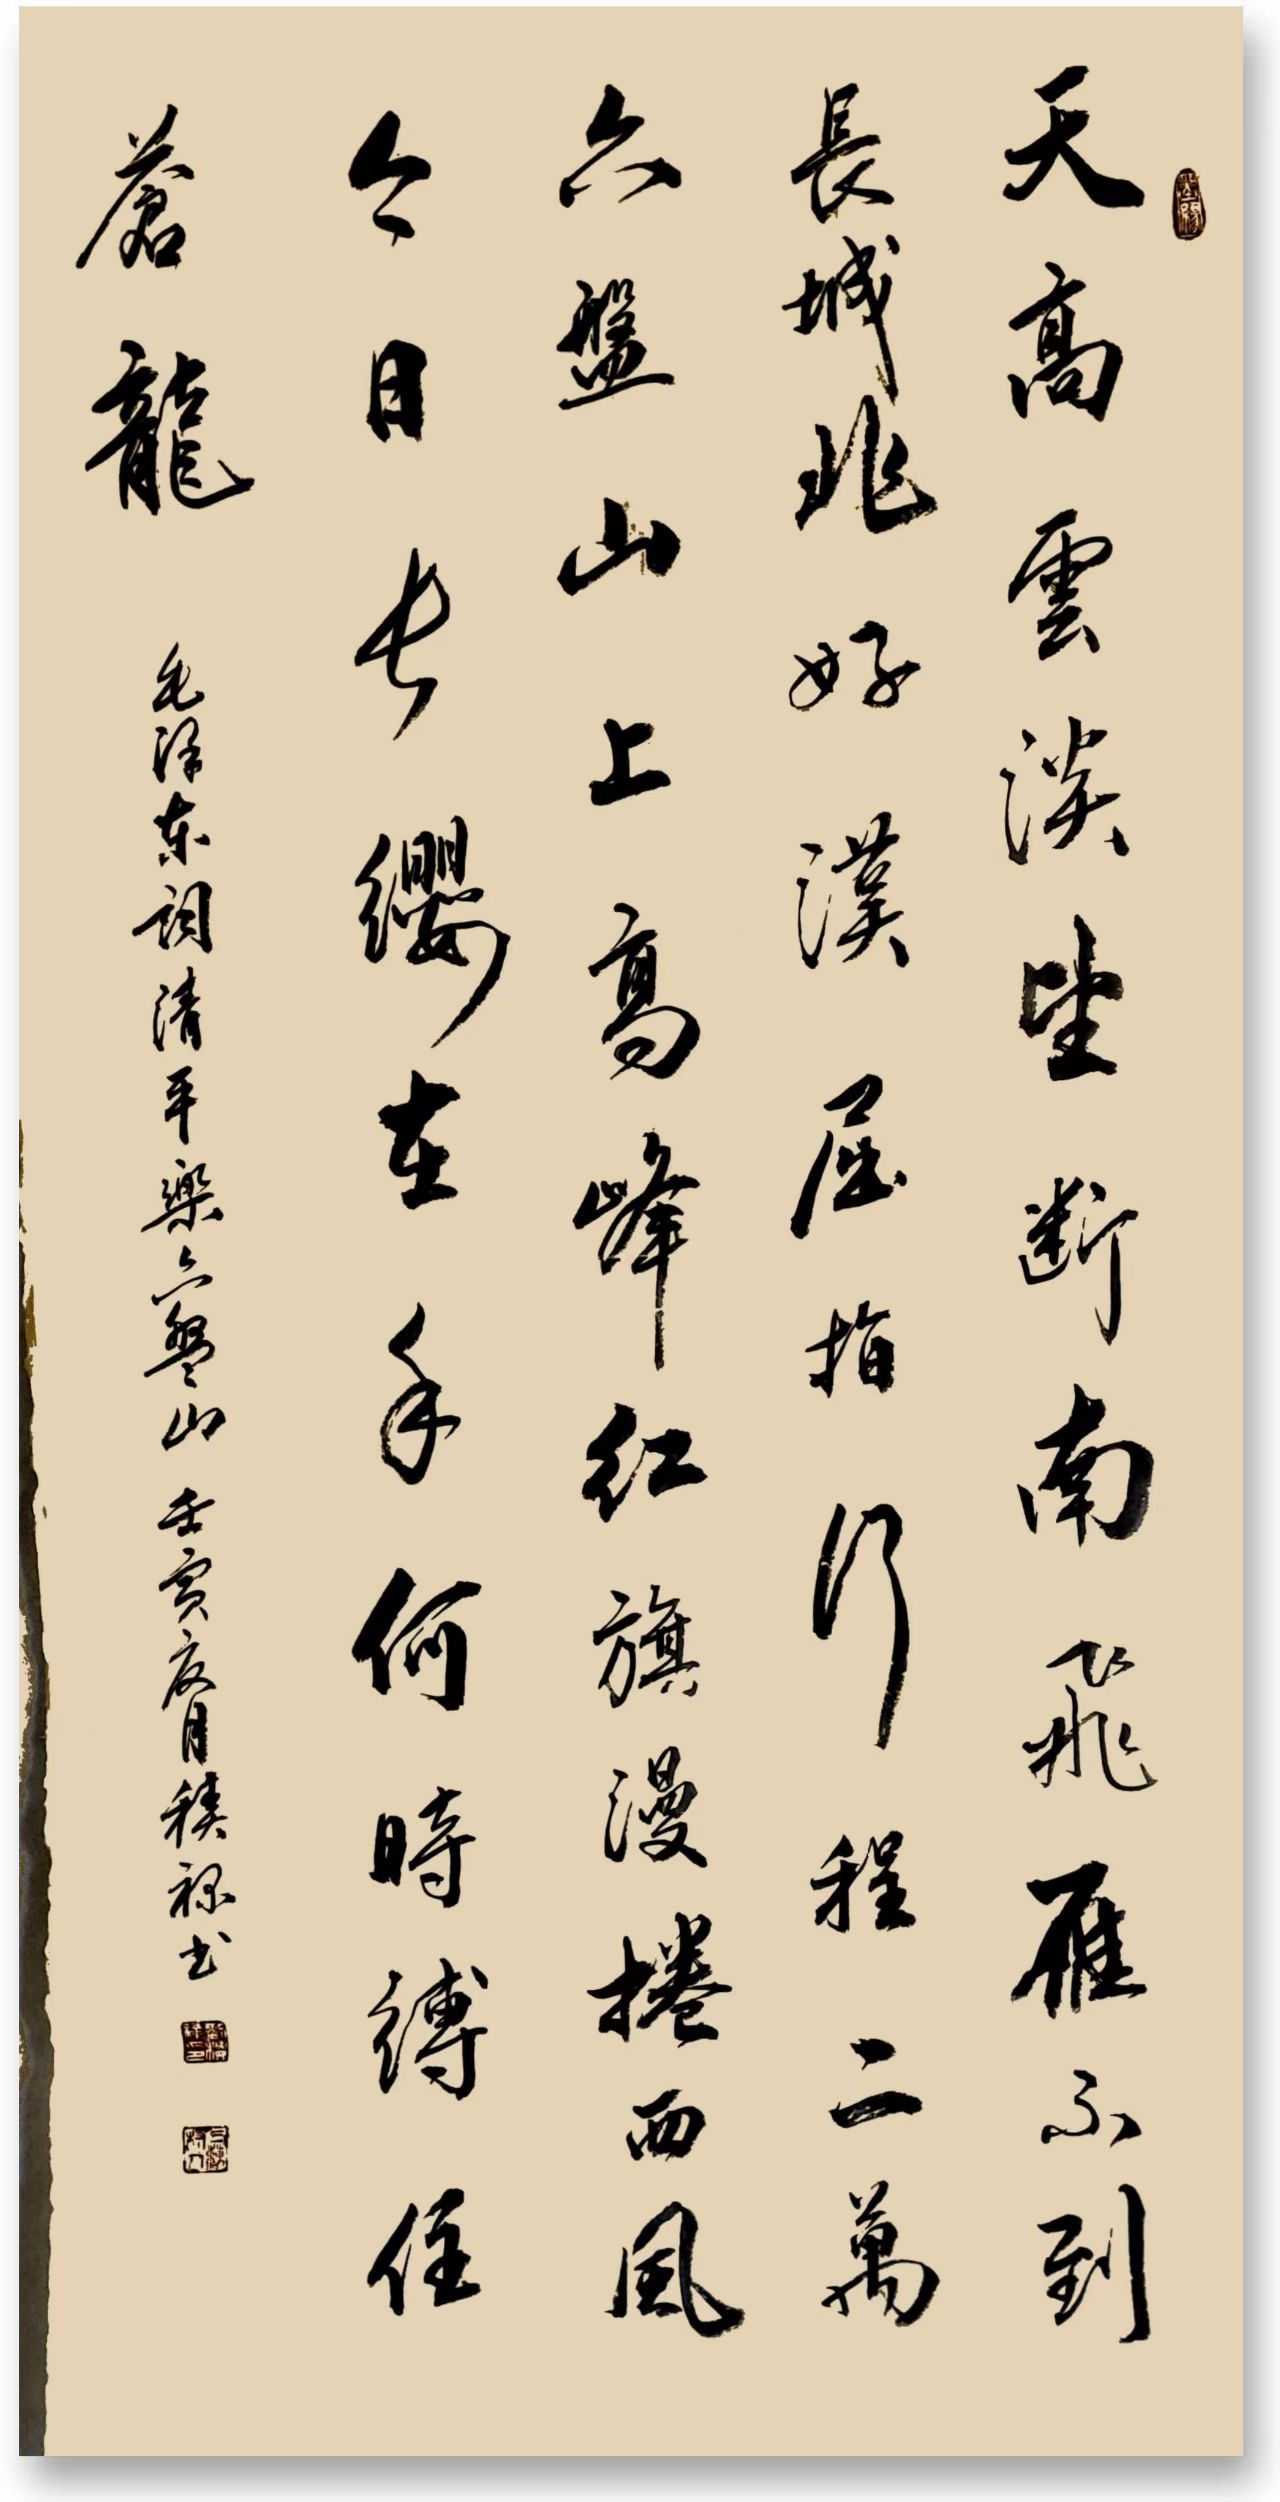 天高雲淡望断南飛雁不到
長城非好漢屈指行程二萬
六盤山上高峰红旗漫捲西風
今日长纓在手何時縛住
蒼龍
毛泽东词清平樂六盤山 壬寅夏月積禄书